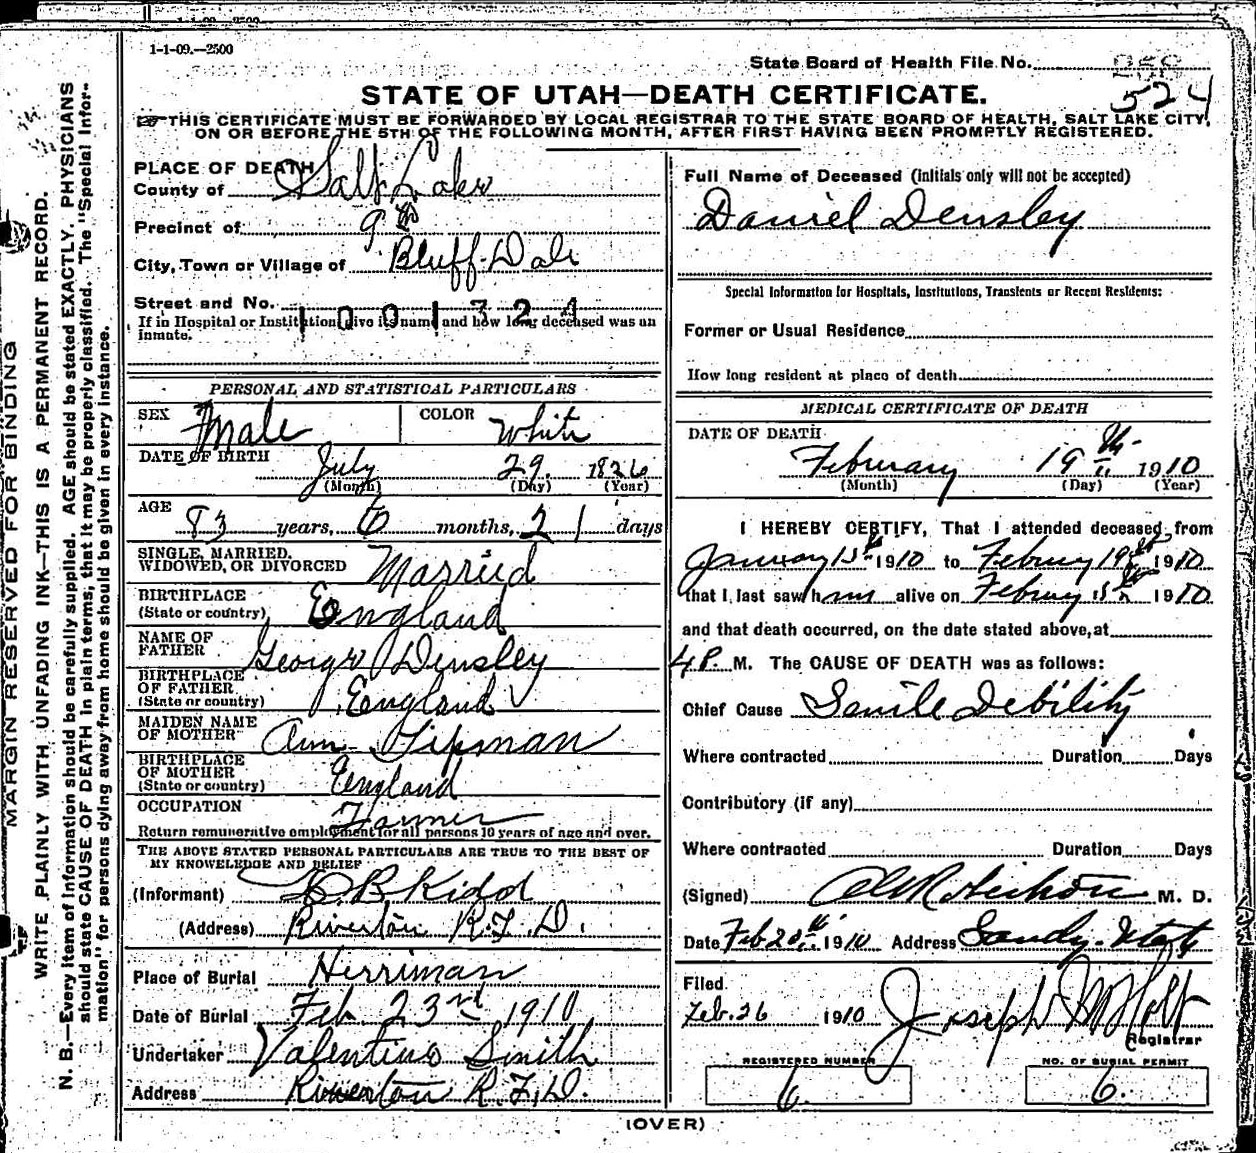 1-1-09.—2500
State Board of Health File No.
524
STATE OF UTAH—DEATH CERTIFICATE.
THIS CERTIFICATE MUST BE FORWARDED BY LOCAL REGISTRAR TO THE STATE BOARD OF HEALTH, SALT LAKE CITY,
ON OR BEFORE THE 5TH OF THE FOLLOWING MONTH, AFTER FIRST HAVING BEEN PROMPTLY REGISTERED.
MARGIN RESERVED FOR BINDING
WRITE PLAINLY WITH UNFADING INK—THIS IS A PERMANENT RECORD.
N. B.—Every item of information should be carefully supplied. AGE should be stated EXACTLY. PHYSICIANS
should state CAUSE OF DEATH in plain terms, that it may be properly classified. The "Special Infor-
mation" for persons dying away from home should be given in every instance.
PLACE OF DEATH
County of Salt Lake
Precinct of 9th
City, Town or Village of Bluff Dale
Street and No.
1001324
If in Hospital or Institution give its name and how long deceased was an
inmate.
PERSONAL AND STATISTICAL PARTICULARS
SEX Male COLOR White
DATE OF BIRTH July 29. 1826
(Month) (Day) (Year)
AGE 83 years, 6 months, 21 days
SINGLE, MARRIED,
WIDOWED, OR DIVORCED Married
BIRTHPLACE
(State or country) England
NAME OF
FATHER George Densley
BIRTHPLACE
OF FATHER
(State or country) England
MAIDEN NAME
OF MOTHER Ann
BIRTHPLACE
OF MOTHER
(State or country) England
OCCUPATION Farmer
Return remunerative employment for all persons 10 years of age and over.
THE ABOVE STATED PERSONAL PARTICULARS ARE TRUE TO THE BEST OF
MY KNOWELEDGE AND BELIEF
(Informant) B Kidd
(Address) Riverton R.F.D.
Place of Burial Herriman
Date of Burial Feb. 23rd 1910
Undertaker Valentine Smith
Address Riverton R.F.D.
Full Name of Deceased (initials only will not be accepted)
Daniel Densley
Special Information for Hospitals, Institutions, Transients or Recent Residents:
Former or Usual Residence
How long resident at place of death
MEDICAL CERTIFICATE OF DEATH
DATE OF DEATH
February 19th 1910
(Month) (Day) (Year)
I HEREBY CERTIFY, That I attended deceased from
January 15th 1910 to Februry 19th 1910
that I last saw him alive on Februry 18th 1910
and that death occurred, on the date stated above, at
4 P. M. The CAUSE OF DEATH was as follows:
Chief Cause Senile Debility
Where contracted Duration Days
Contributory (if any)
Where contracted Duration Days
(Signed) M. D.
Date Feb 20th 1910 Address Sandy Utah
Filed
Feb. 26 1910 Joseph M Holt
Registrar
REGISTERED NUMBER
6.
NO. OF BURIAL PERMIT
6.
(OVER)